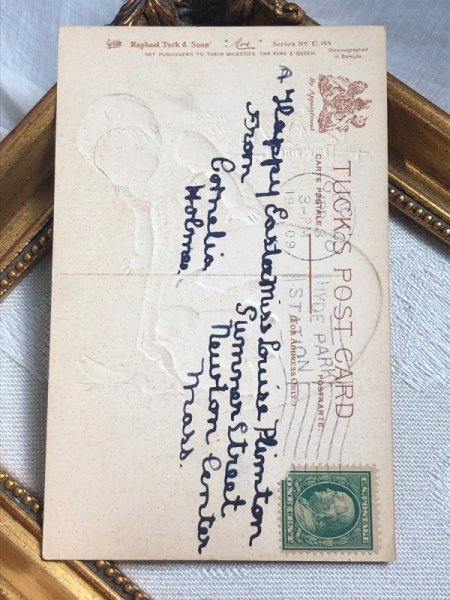 Raphael Tuck & Sons' "Art" Series No. E. 165
ART PUBLISHERS TO THEIR MAJESTIES THE KING & QUEEN.
Chromographed
in BERLIN.
By Appointment
TUCK'S POST CARD
CARTE POSTALE
POSTKARTE
(FOR ADDRESS ONLY)
APR 8
3-PM
1909
HYDE PARK
STATION
A Happy Easter
From
Cornelia
Holmes.
Miss Louise Plimton
Sumner Street
Newton Center
Mass.
U.S. POSTAGE
ONE CENT